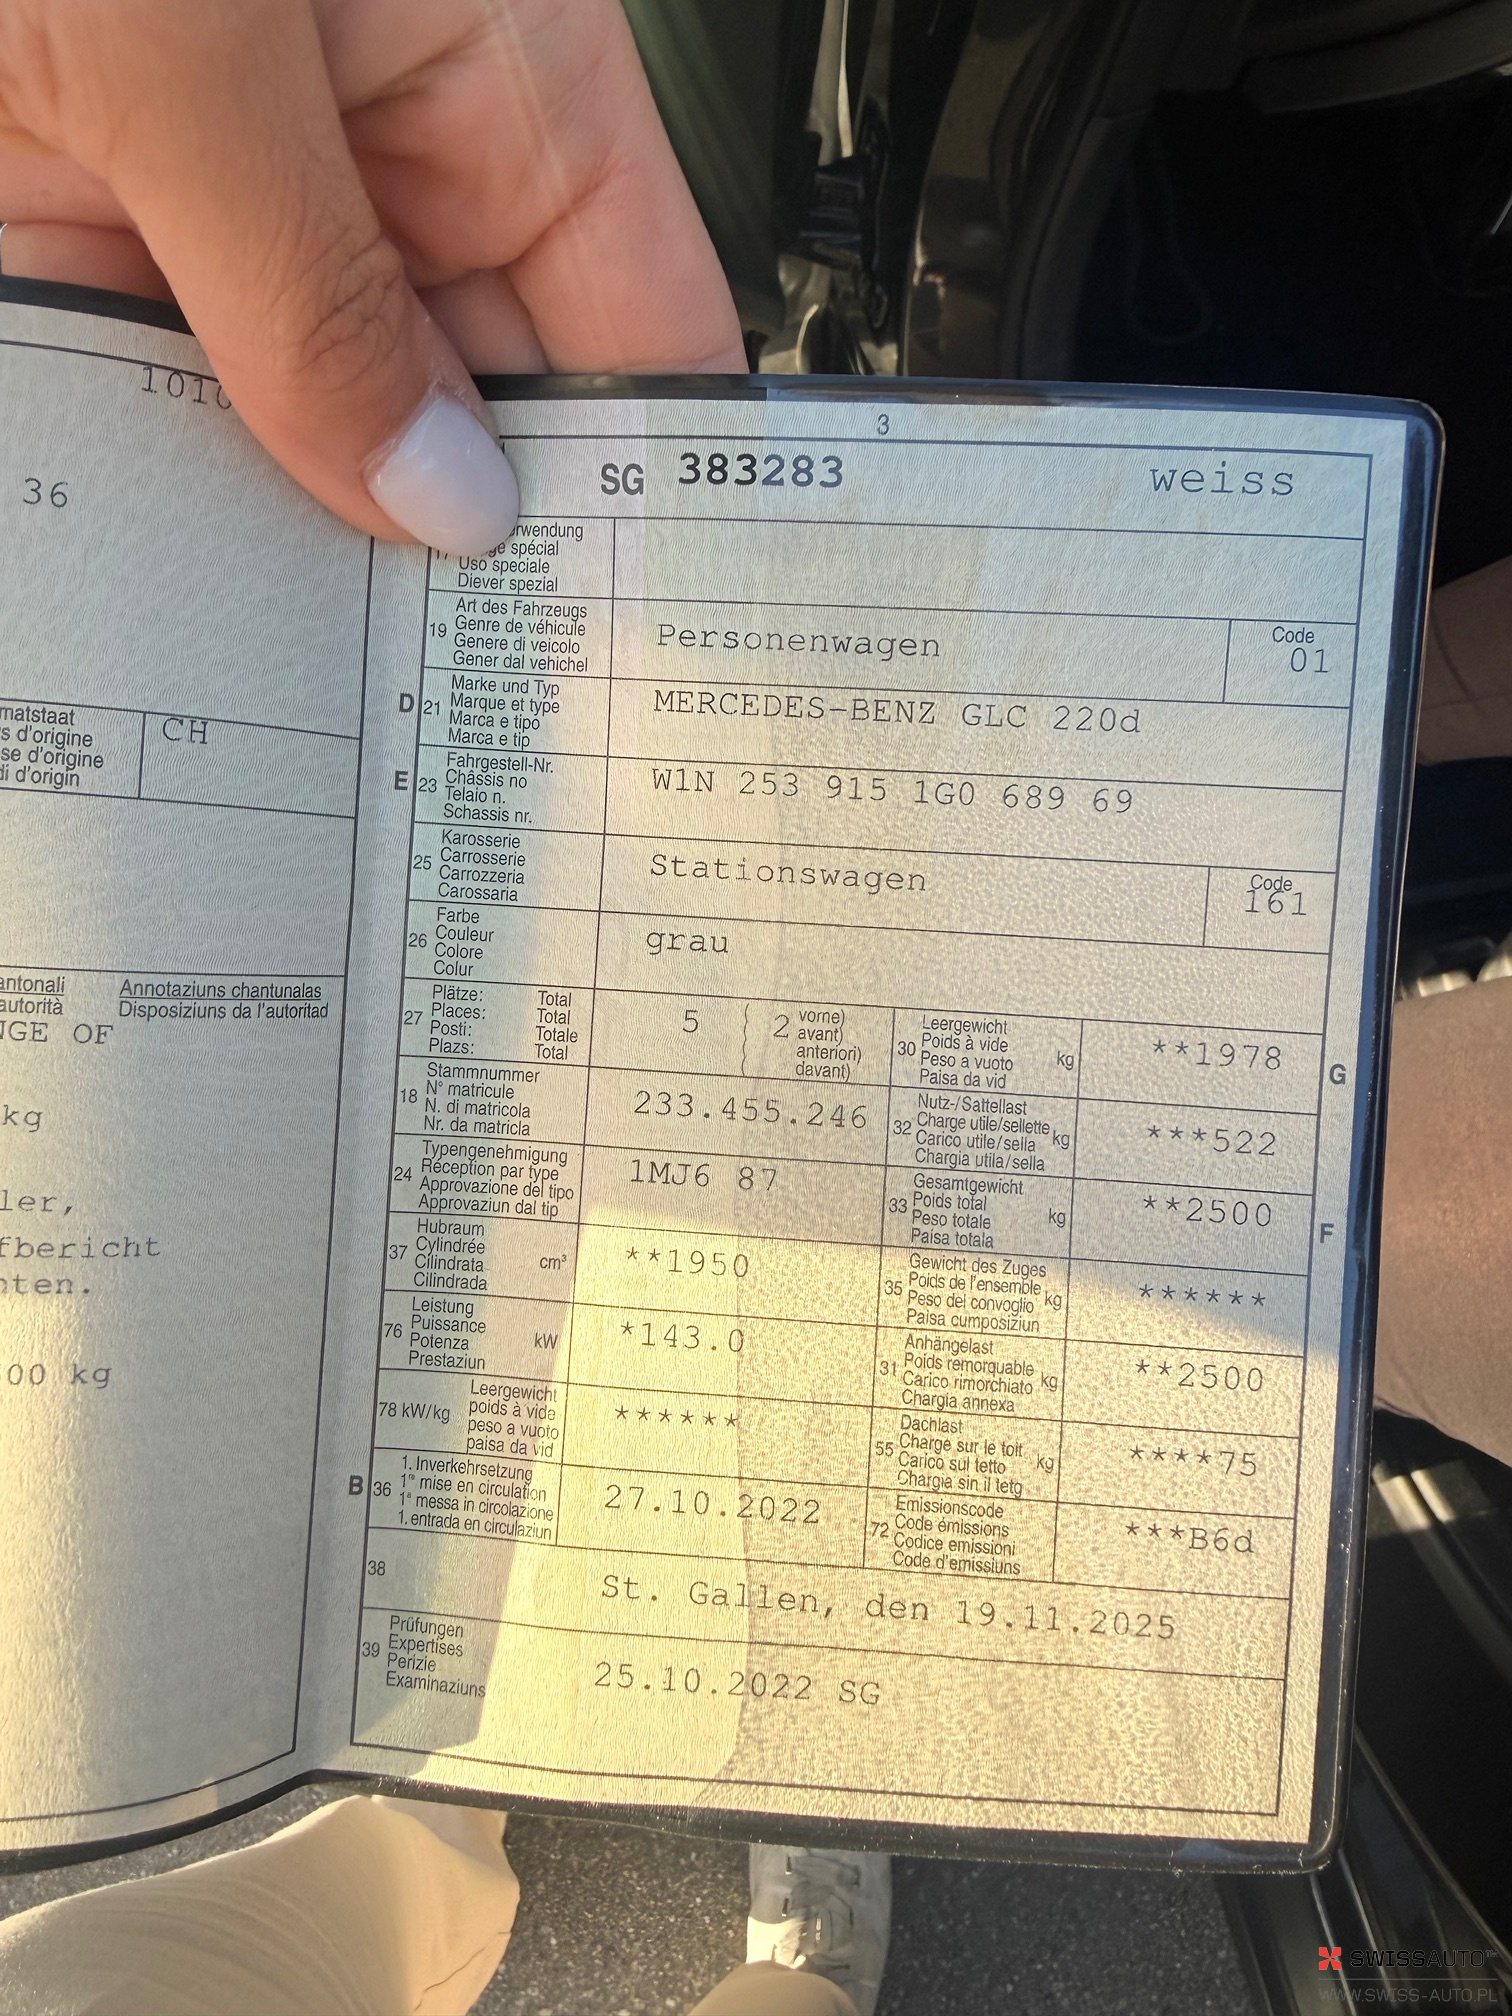 36
matstaat
s d'origine
se d'origine
di d'origin
CH
antonali
autorità
Annotaziuns chantunalas
Disposiziuns da l'autoritad
NGE OF
kg
ler,
fbericht
ten.
00 kg
3
SG 383283 weiss
rwendung
spécial
Uso speciale
Diever spezial
19
Art des Fahrzeugs
Genre de véhicule
Genere di veicolo
Gener dal vehichel
Personenwagen
Code
01
D 21
Marke und Typ
Marque et type
Marca e tipo
Marca e tip
MERCEDES-BENZ GLC 220d
E 23
Fahrgestell-Nr.
Châssis no
Telaio n.
Schassis nr.
W1N 253 915 1G0 689 69
25
Karosserie
Carrosserie
Carrozzeria
Carossaria
Stationswagen
Code
161
26
Farbe
Couleur
Colore
Colur
grau
27
Plätze: Total
Places: Total
Posti: Totale
Plazs: Total
5
2
vorne)
avant)
anteriori)
davant)
30
Leergewicht
Poids à vide
Peso a vuoto
Paisa da vid
kg
**1978
G
18
Stammnummer
N° matricule
N. di matricola
Nr. da matricla
233.455.246
32
Nutz-/Sattellast
Charge utile/sellette
Carico utile/sella
Chargia utila/sella
kg
***522
24
Typengenehmigung
Réception par type
Approvazione del tipo
Approvaziun dal tip
1MJ6 87
33
Gesamtgewicht
Poids total
Peso totale
Paisa totala
kg
**2500
F
37
Hubraum
Cylindrée
Cilindrata
Cilindrada
cm³
**1950
35
Gewicht des Zuges
Poids de l'ensemble
Peso del convoglio
Paisa cumposiziun
kg
******
76
Leistung
Puissance
Potenza
Prestaziun
kW
*143.0
31
Anhängelast
Poids remorquable
Carico rimorchiato
Chargia annexa
kg
**2500
78 kW/kg
Leergewicht
poids à vide
peso a vuoto
paisa da vid
******
55
Dachlast
Charge sur le toit
Carico sul tetto
Chargia sin il tetg
kg
****75
B 36
1. Inverkehrsetzung
1re mise en circulation
1a messa in circolazione
1. entrada en circulaziun
27.10.2022
72
Emissionscode
Code émissions
Codice emissioni
Code d'emissiuns
***B6d
38
St. Gallen, den 19.11.2025
39
Prüfungen
Expertises
Perizie
Examinaziuns
25.10.2022 SG
SWISSAUTO
WWW.SWISS-AUTO.PL